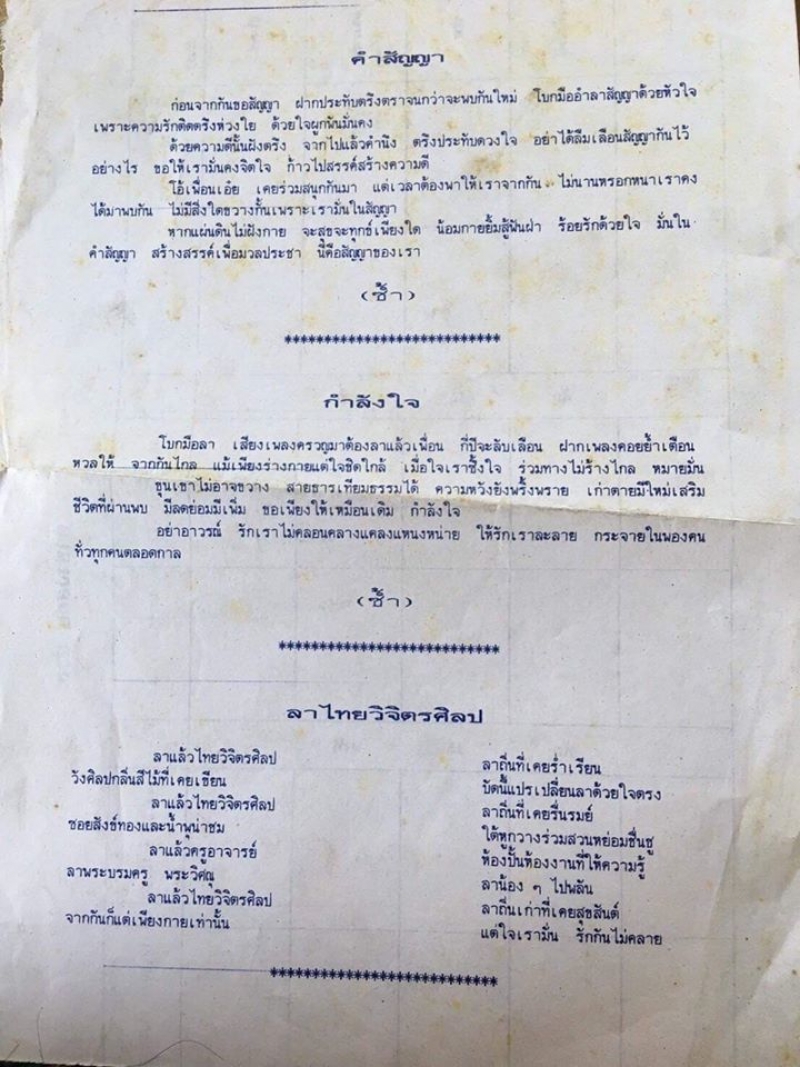 คำสัญญา
ก่อนจากกันขอสัญญา ฝากประทับตรึงตราจนกว่าจะพบกันใหม่ โบกมืออำลาสัญญาด้วยหัวใจ
เพราะความรักติดตรึงห่วงใย ด้วยใจผูกพันมั่นคง
ด้วยความดีนั้นฝังตรึง จากไปแล้วคำนึง ตรึงประทับดวงใจ อย่าได้ลืมเลือนสัญญากันไว้
อย่างไร ขอให้เรามั่นคงจิตใจ ก้าวไปสรรค์สร้างความดี
โอ้เพื่อนเอ๋ย เคยร่วมสนุกกันมา แต่เวลาต้องพาให้เราจากกัน ไม่นานหรอกหนาเราคง
ได้มาพบกัน ไม่มีสิ่งใดขวางกั้นเพราะเรามั่นในสัญญา
หากแผ่นดินไม่ฝังกาย จะสุขจะทุกข์เพียงใด น้อมกายยิ้มสู้ฟันฝ่า ร้อยรักด้วยใจ มั่นใน
คำสัญญา สร้างสรรค์เพื่อมวลประชา นี้คือสัญญาของเรา
(ซ้ำ)
***************************
กำลังใจ
โบกมือลา เสียงเพลงครวญมาต้องลาแล้วเพื่อน กี่ปีจะลับเลือน ฝากเพลงคอยย้ำเตือน
หวลให้ จากกันไกล แม้เพียงร่างกายแต่ใจชิดใกล้ เมื่อใจเราซึ้งใจ ร่วมทางไม่ร้างไกล หมายมั่น
ขุนเขาไม่อาจขวาง สายธารเทียมธรรมได้ ความหวังยังพริ้งพราย เก่าตายมีใหม่เสริม
ชีวิตที่ผ่านพบ มีลดย่อมมีเพิ่ม ขอเพียงให้เหมือนเดิม กำลังใจ
อย่าอาวรณ์ รักเราไม่คลอนคลางแคลงแหนงหน่าย ให้รักเราละลาย กระจายในพองคน
ทั่วทุกคนตลอดกาล
(ซ้ำ)
***************************
ลาไทยวิจิตรศิลป
ลาแล้วไทยวิจิตรศิลป ลาถิ่นที่เคยร่ำเรียน
วังศิลปกลิ่นสีไม้ที่เคยเขียน บัดนี้แปรเปลี่ยนลาด้วยใจตรง
ลาแล้วไทยวิจิตรศิลป ลาถิ่นที่เคยรื่นรมย์
ซอยสังข์ทองและน้ำพุน่าชม ใต้หูกวางร่วมสวนหย่อมชื่นชู
ลาแล้วครูอาจารย์ ห้องปั้นห้องงานที่ให้ความรู้
ลาพระบรมครู พระวิศณุ ลาน้อง ๆ ไปพลัน
ลาแล้วไทยวิจิตรศิลป ลาถิ่นเก่าที่เคยสุขสันต์
จากกันก็แต่เพียงกายเท่านั้น แต่ใจเรามั่น รักกันไม่คลาย
***************************